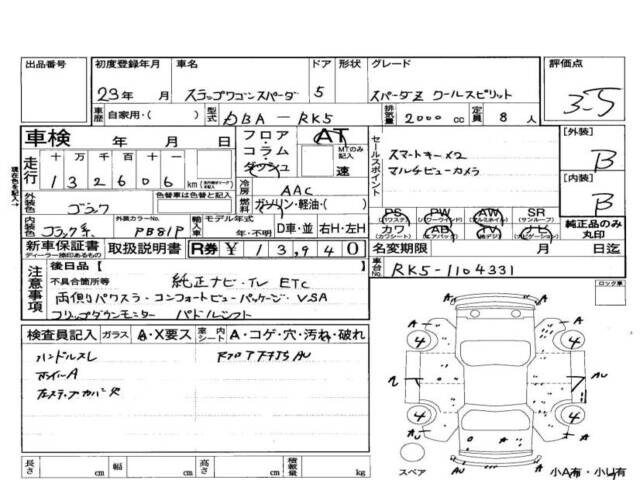 出品番号 初度登録年月 車名 ドア 形状 グレード 評価点
23年 月 ステップワゴンスパーダ 5 スパーダZ クールスピリット 3.5
車歴 自家用・( ) 型式 DBA-RK5 排気量 2000 cc 定員 8 人
車検 年 月 日
フロア コラム ダッシュ AT MTのみ記入 速
走行 十万千百十 132606 km
冷房 AAC
燃料 ガソリン・軽油・( )
セールスポイント
スマートキー×2
マルチビューカメラ
[外装] B
[内装] B
現在色を記入
外装色 ブラック 色替車は色替と記入
内装色 ブラック系 外装カラーNo. PB81P
輸入車 モデル年式 年・不明 D車・並 右H・左H
PS (パワステ) PW (パワーウインド) AW (アルミホイル) SR (サンルーフ)
カワ (カワシート) AB (エアバック) TV ナビ (ナビゲーション)
純正品のみ丸印
新車保証書 ディーラー捺印あるもの 取扱説明書 R券 ¥13,940
名変期限 月 日迄
車台No. RK5-1104331
注意事項
後日品【 】
不具合箇所等 純正ナビ・TV ETC
両側パワスラ・コンフォートビューパッケージ・VSA
フリップダウンモニター パドルシフト
ロック車
検査員記入 ガラス A・X要ス 室内シート A・コゲ・穴・汚れ・破れ
ハンドルスレ
ホイールA
左ステップカバーヤ
A A
4 4
2 A AU
4 4
AU A A
AU A
スペア 小A有・小U有
長さ cm 幅 cm 高さ cm 積載量 kg